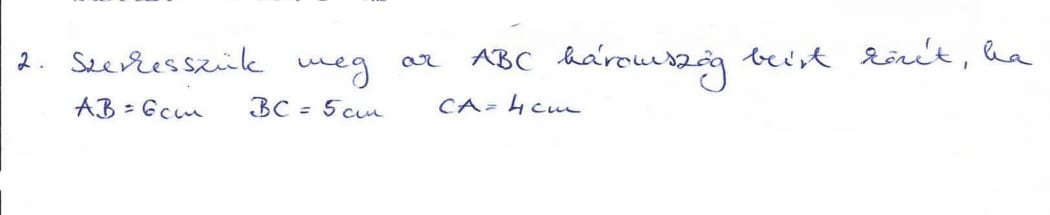 2. Szerkesszük meg az ABC háromszög beírt körét, ha
AB = 6cm BC = 5cm CA = 4cm